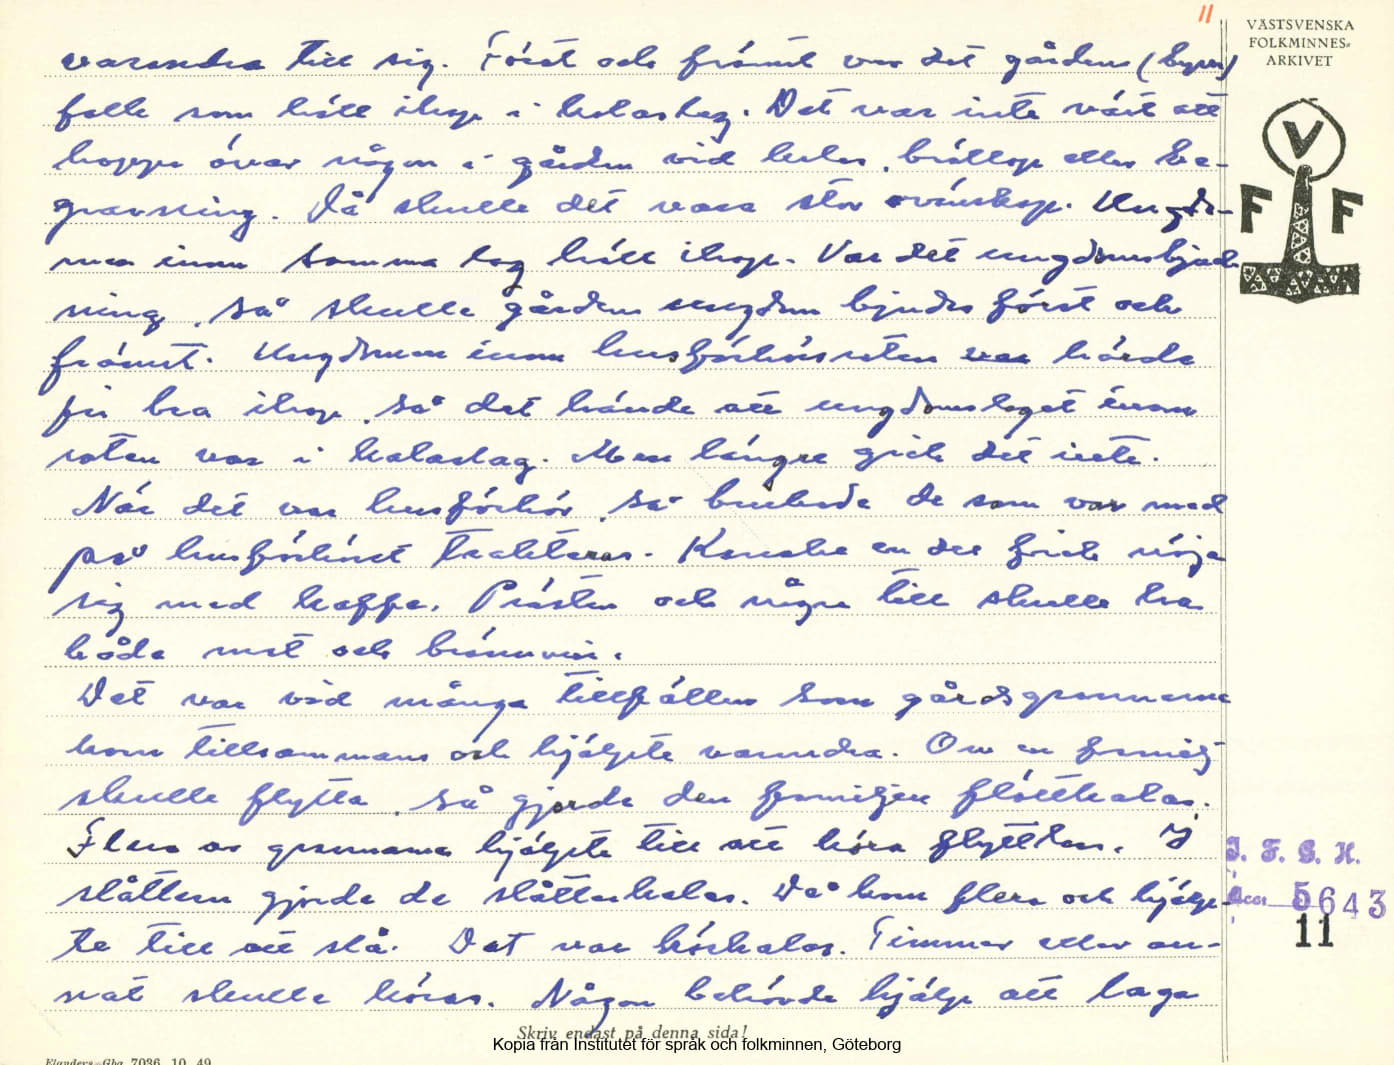 11
VÄSTSVENSKA
FOLKMINNES-
ARKIVET
V
F F
varandra till sig. Först och främst var det gårdens (byns)
folk som höll ihop i kalaslag. Det var inte värt att
hoppa över någon i gården vid kalas, bröllop eller be-
gravning. Då skulle det vara stor ovänskap. Ungdo-
men inom samma lag höll ihop. Var det ungdomsbjud-
ning, så skulle gårdens ungdom bjudas först och
främst. Ungdomen inom husförhörsroten hörde
ju bra ihop, så det hände att ungdomslaget inom
roten var i kalaslag. Men längre gick det inte.
När det var husförhör, så brukade de som var med
på husförhöret trakteras. Kanske en del fick nöja
sig med kaffe. Prästen och några till skulle ha
både mat och brännvin.
Det var vid många tillfällen som gårdsgrannarna
kom tillsammans och hjälpte varandra. Om en familj
skulle flytta, så gjorde den familjen flöttkalas.
Flera av grannarna hjälpte till att köra flyttken. I
slåttern gjorde de slåtterkalas. Då kom flera och hjälp-
te till att slå. Det var körkalas. Timmer eller an-
nat skulle köras. Någon behövde hjälp att laga
I. F. G. H.
Acc. 5643
11
Skriv endast på denna sida!
Kopia från Institutet för språk och folkminnen, Göteborg
Elanders Gbg 7036. 10. 49